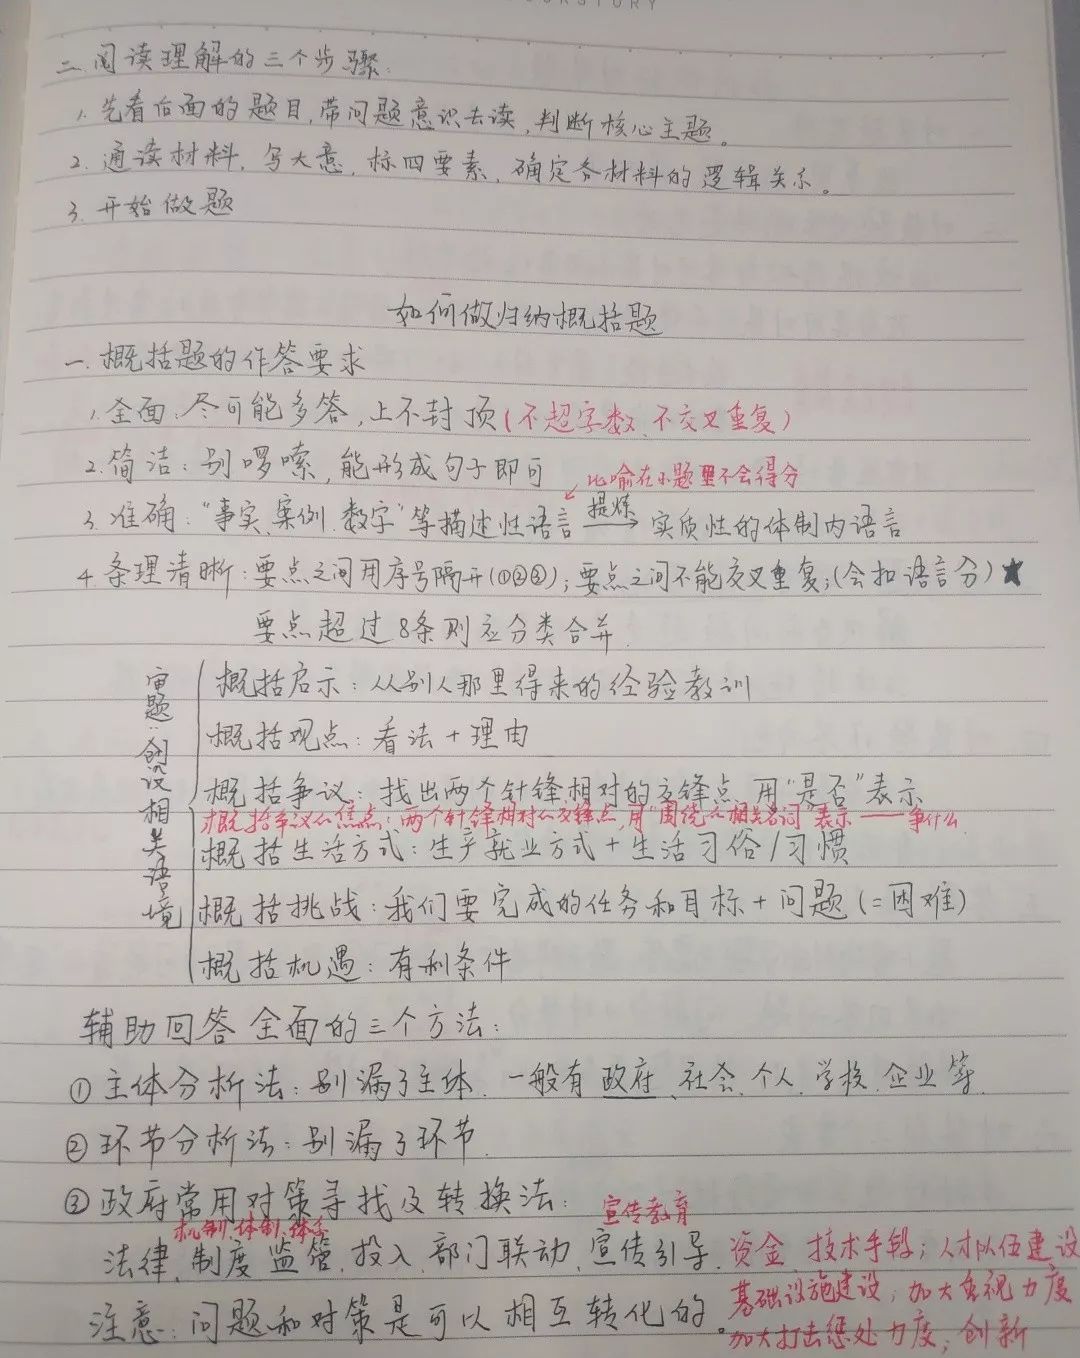 二.阅读理解的三个步骤:
1.先看后面的题目,带问题意识去读,判断核心主题。
2.通读材料,写大意,标四要素,确定各材料的逻辑关系。
3.开始做题
如何做归纳概括题
一.概括题的作答要求
1.全面:尽可能多答,上不封顶(不超字数、不交叉重复)
2.简洁:别啰嗦,能形成句子即可
比喻在小题里不会得分
3.准确:“事实、案例、数字”等描述性语言 提炼→ 实质性的体制内语言
4.条理清晰:要点之间用序号隔开(①②③);要点之间不能交叉重复;(会扣语言分)★
要点超过8条则应分类合并.
审题:创设相关语境
概括启示:从别人那里得来的经验教训
概括观点:看法+理由
概括争议:找出两个针锋相对的交锋点,用“是否”表示
概括争议的焦点:两个针锋相对的交锋点,用“围绕+相关名词”表示——争什么
概括生活方式:生产就业方式+生活习俗/习惯
概括挑战:我们要完成的任务和目标+问题(=困难)
概括机遇:有利条件
辅助回答全面的三个方法:
①主体分析法:别漏了主体.一般有政府、社会、个人、学校、企业等.
②环节分析法:别漏了环节.
③政府常用对策寻找及转换法:
机制、体制、体系
宣传教育
法律、制度、监管、投入、部门联动、宣传引导、资金、技术手段;人才队伍建设
基础设施建设;加大重视力度
注意:问题和对策是可以相互转化的。加大打击惩处力度;创新